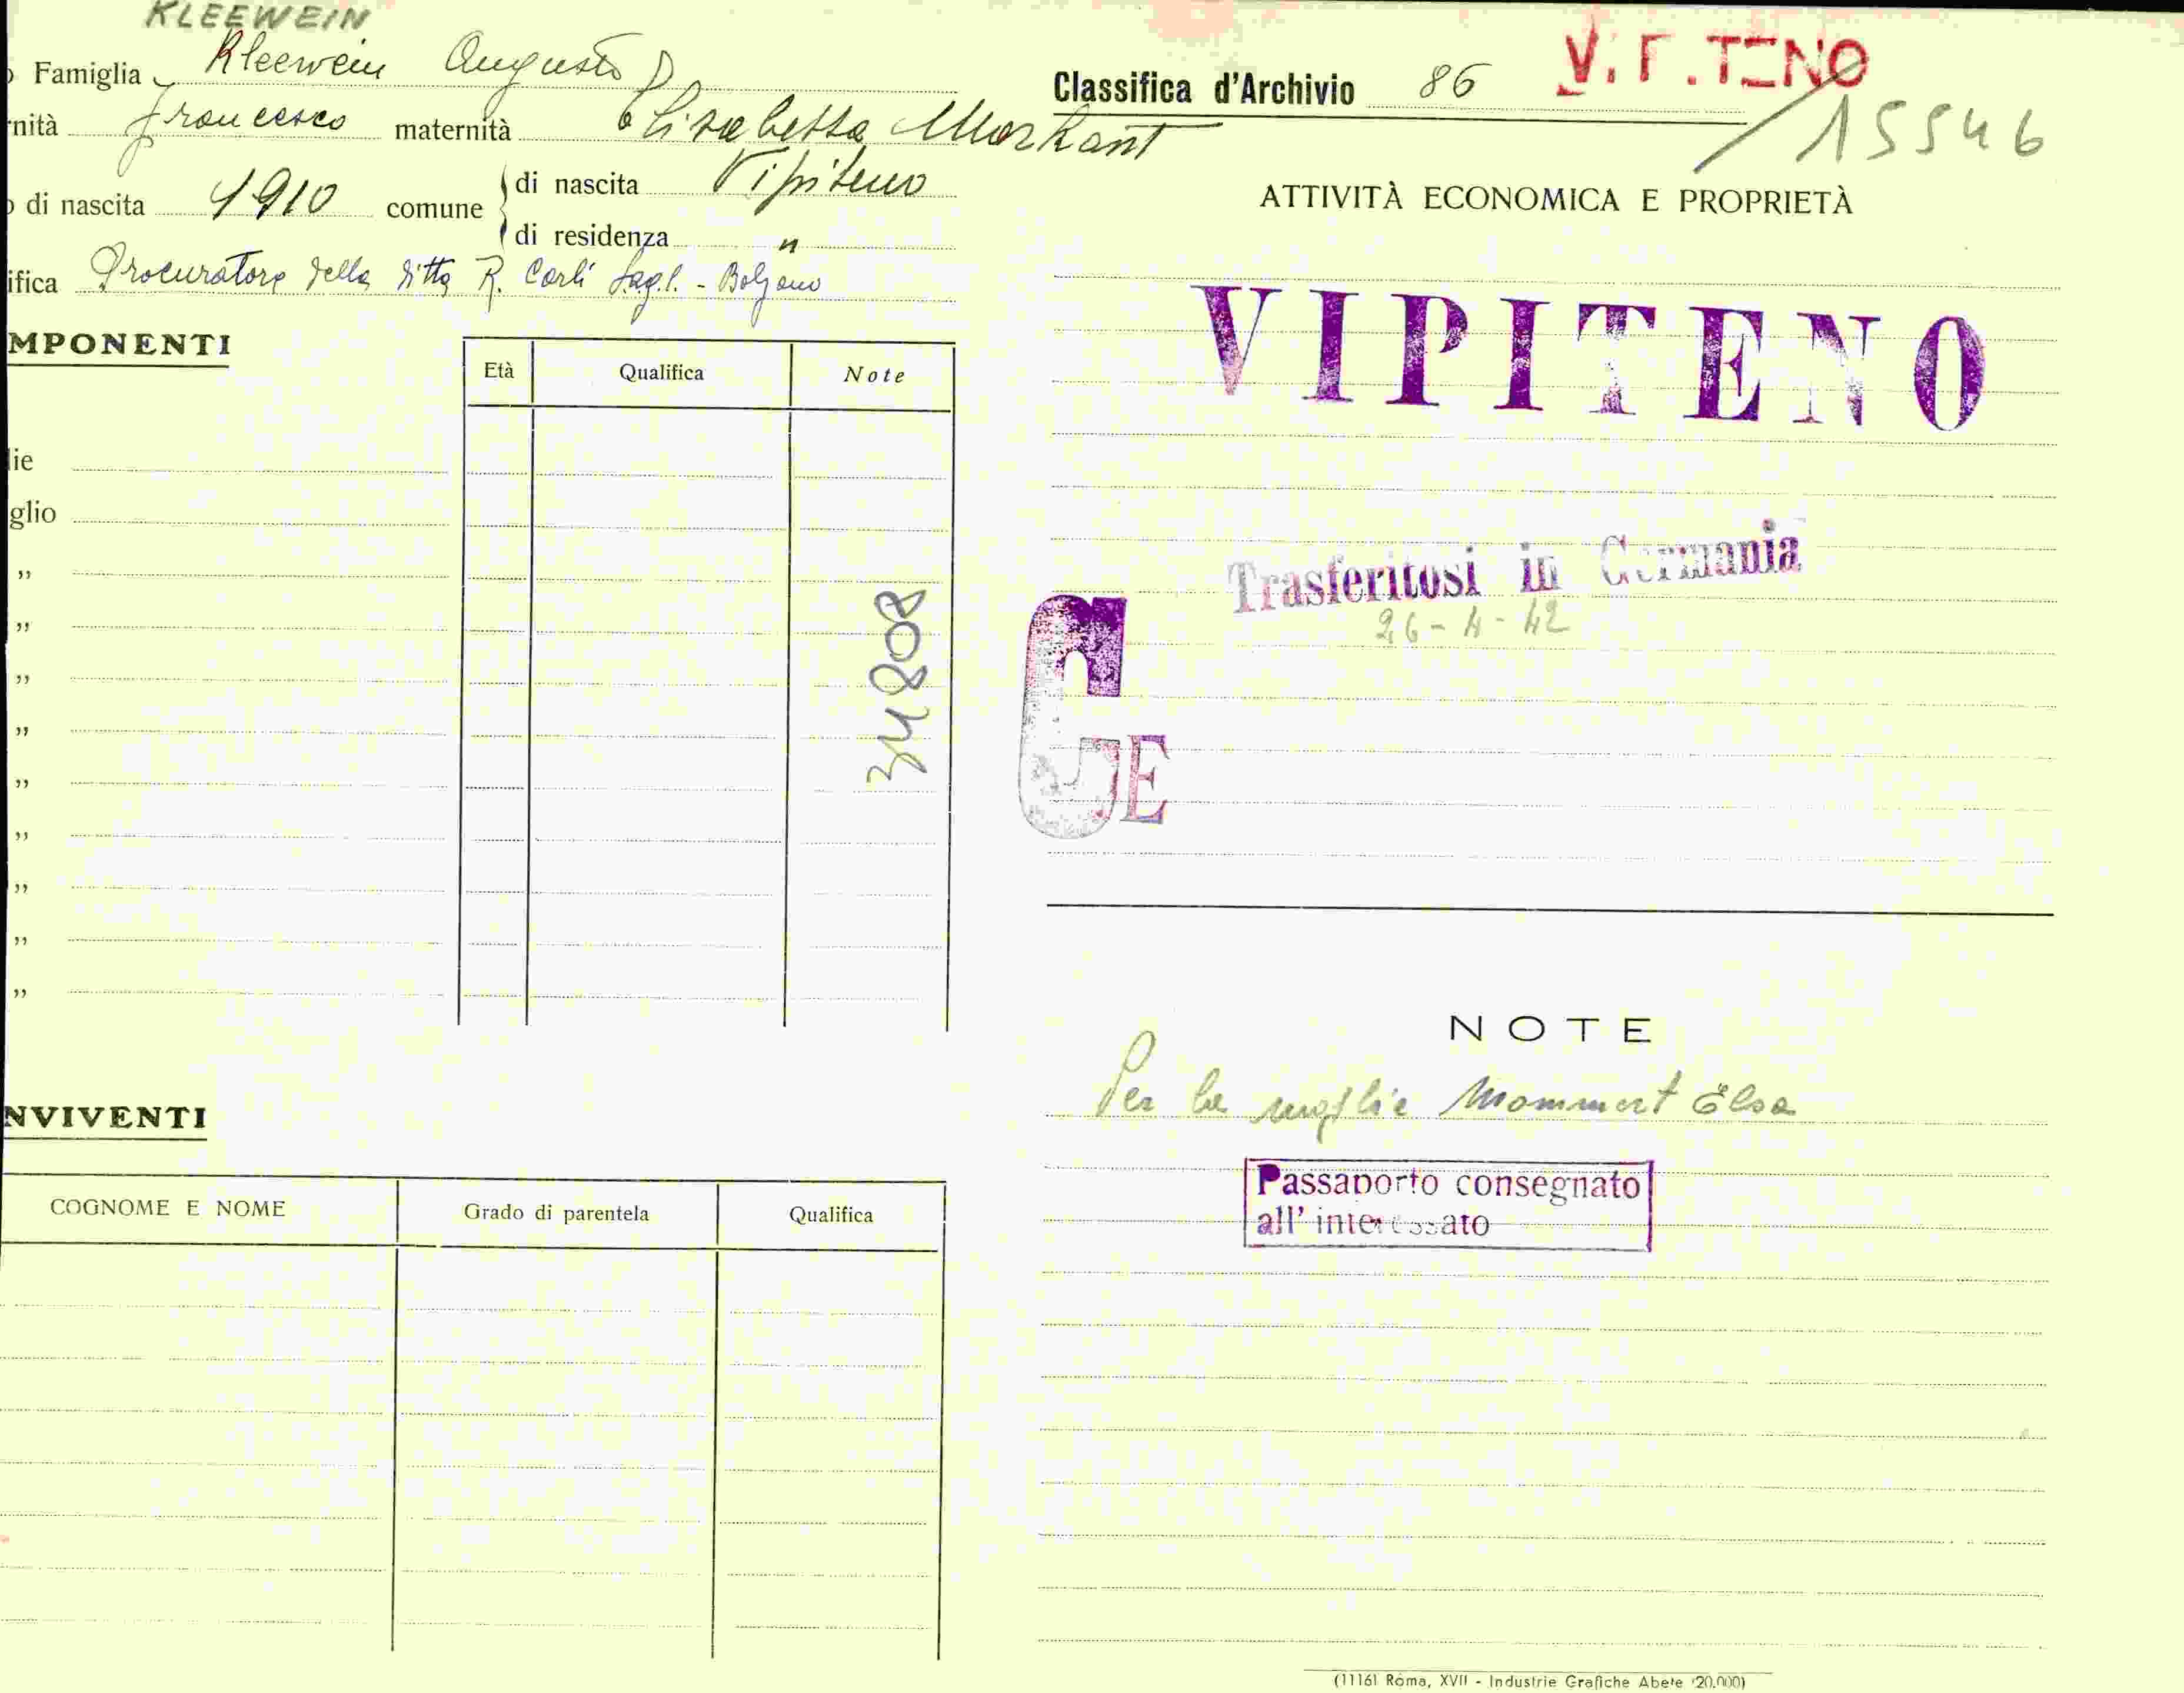 KLEEWEIN
Famiglia Kleewein Augusto
nità Francesco maternità Elisabetta Markart
di nascita 1910 comune di nascita Vipiteno
di residenza "
ifica Procuratore della ditta R. Carli S.a.g.l. - Bolzano
MPONENTI
Età Qualifica Note
lie
glio
"
"
"
"
"
"
"
"
"
34808
NVIVENTI
COGNOME E NOME Grado di parentela Qualifica
Classifica d'Archivio 86 / 15546
ATTIVITÀ ECONOMICA E PROPRIETÀ
VIPITENO
Trasferitosi in Germania
26-4-42
G
E
NOTE
Per la moglie Mommert Elsa
Passaporto consegnato
all' interessato
(1116) Roma, XVII - Industrie Grafiche Abete (20.000)